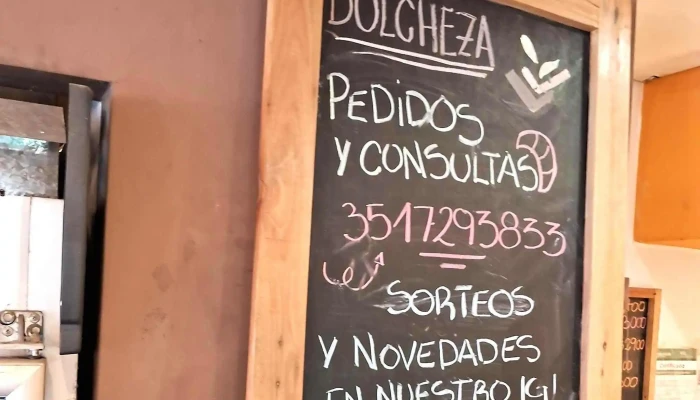 DOLCHEZA
PEDiDOS
Y CONSULTAS
3517293833
SORTEOS
Y NOVEDADES
EN NUESTRO IG!